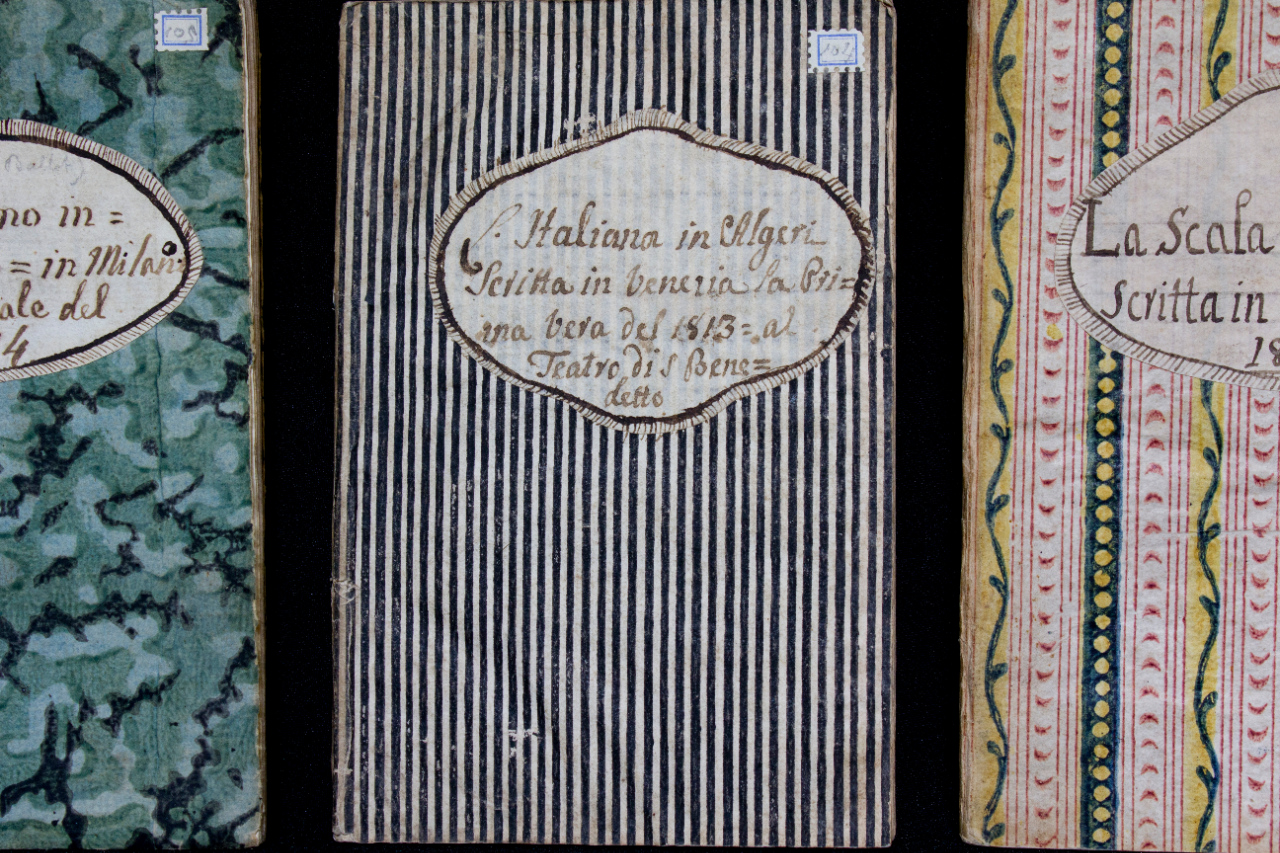 105
Ballet)
no in =
= in Milano
ale del
4
104
L'Italiana in Algeri
Scritta in Venezia la Pri=
ma vera del 1813 = al
Teatro di S Bene=
detto
La Scala
Scritta in
18